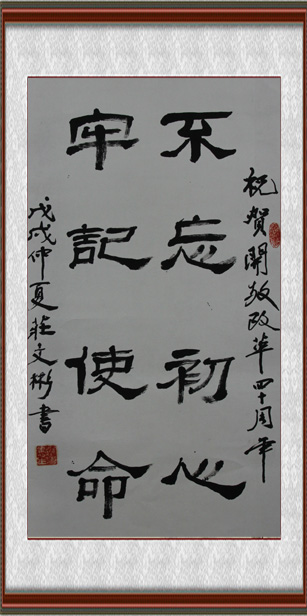 祝賀開放改革四十周年
不忘初心
牢記使命
戊戌仲夏莊文彬書